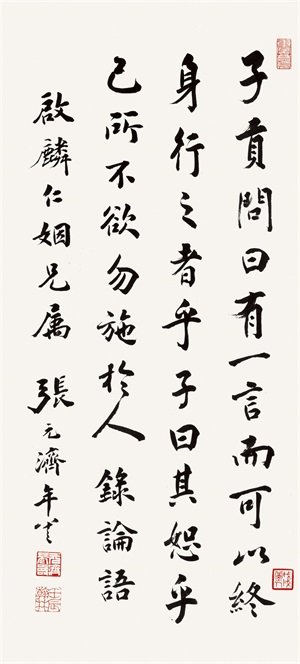 子貢問曰有一言而可以終
身行之者乎子曰其恕乎
己所不欲勿施於人 錄論語
啟麟仁姻兄属 張元濟年